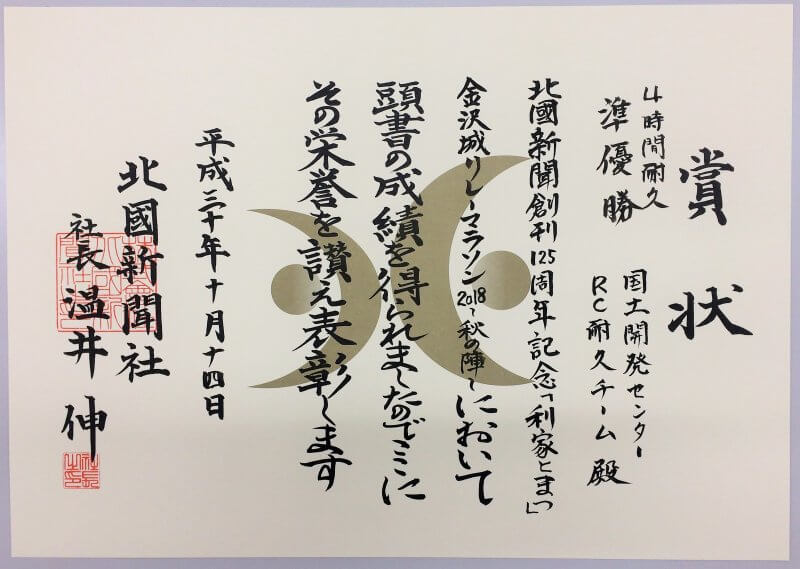 賞状
4時間耐久
準優勝
国土開発センター
RC耐久チーム 殿
北國新聞創刊125周年記念「利家とまつ」
金沢城リレーマラソン2018〜秋の陣〜において
頭書の成績を得られましたのでここに
その栄誉を讃え表彰します
平成三十年十月十四日
北國新聞社
社長 温井 伸